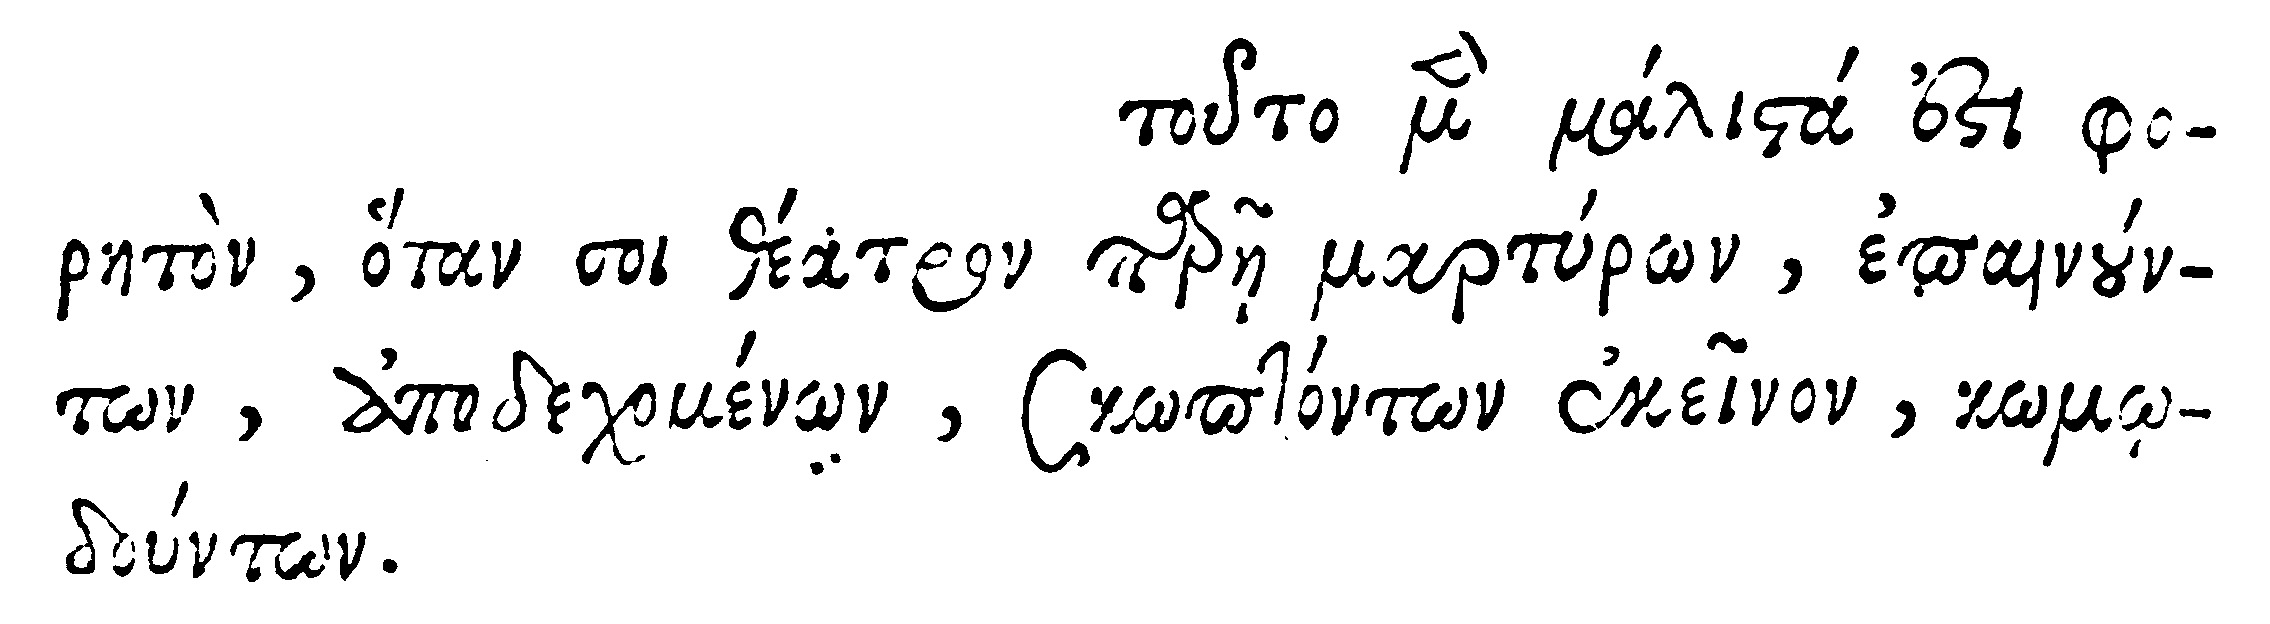 τοῦτο μὲν μάλιστά ἐστι φο-
ρητὸν, ὅταν σοι θέατρον παρῇ μαρτύρων, ἐπαινούν-
των, ἀποδεχομένων, σκωπτόντων ἐκεῖνον, κωμῳ-
δούντων.